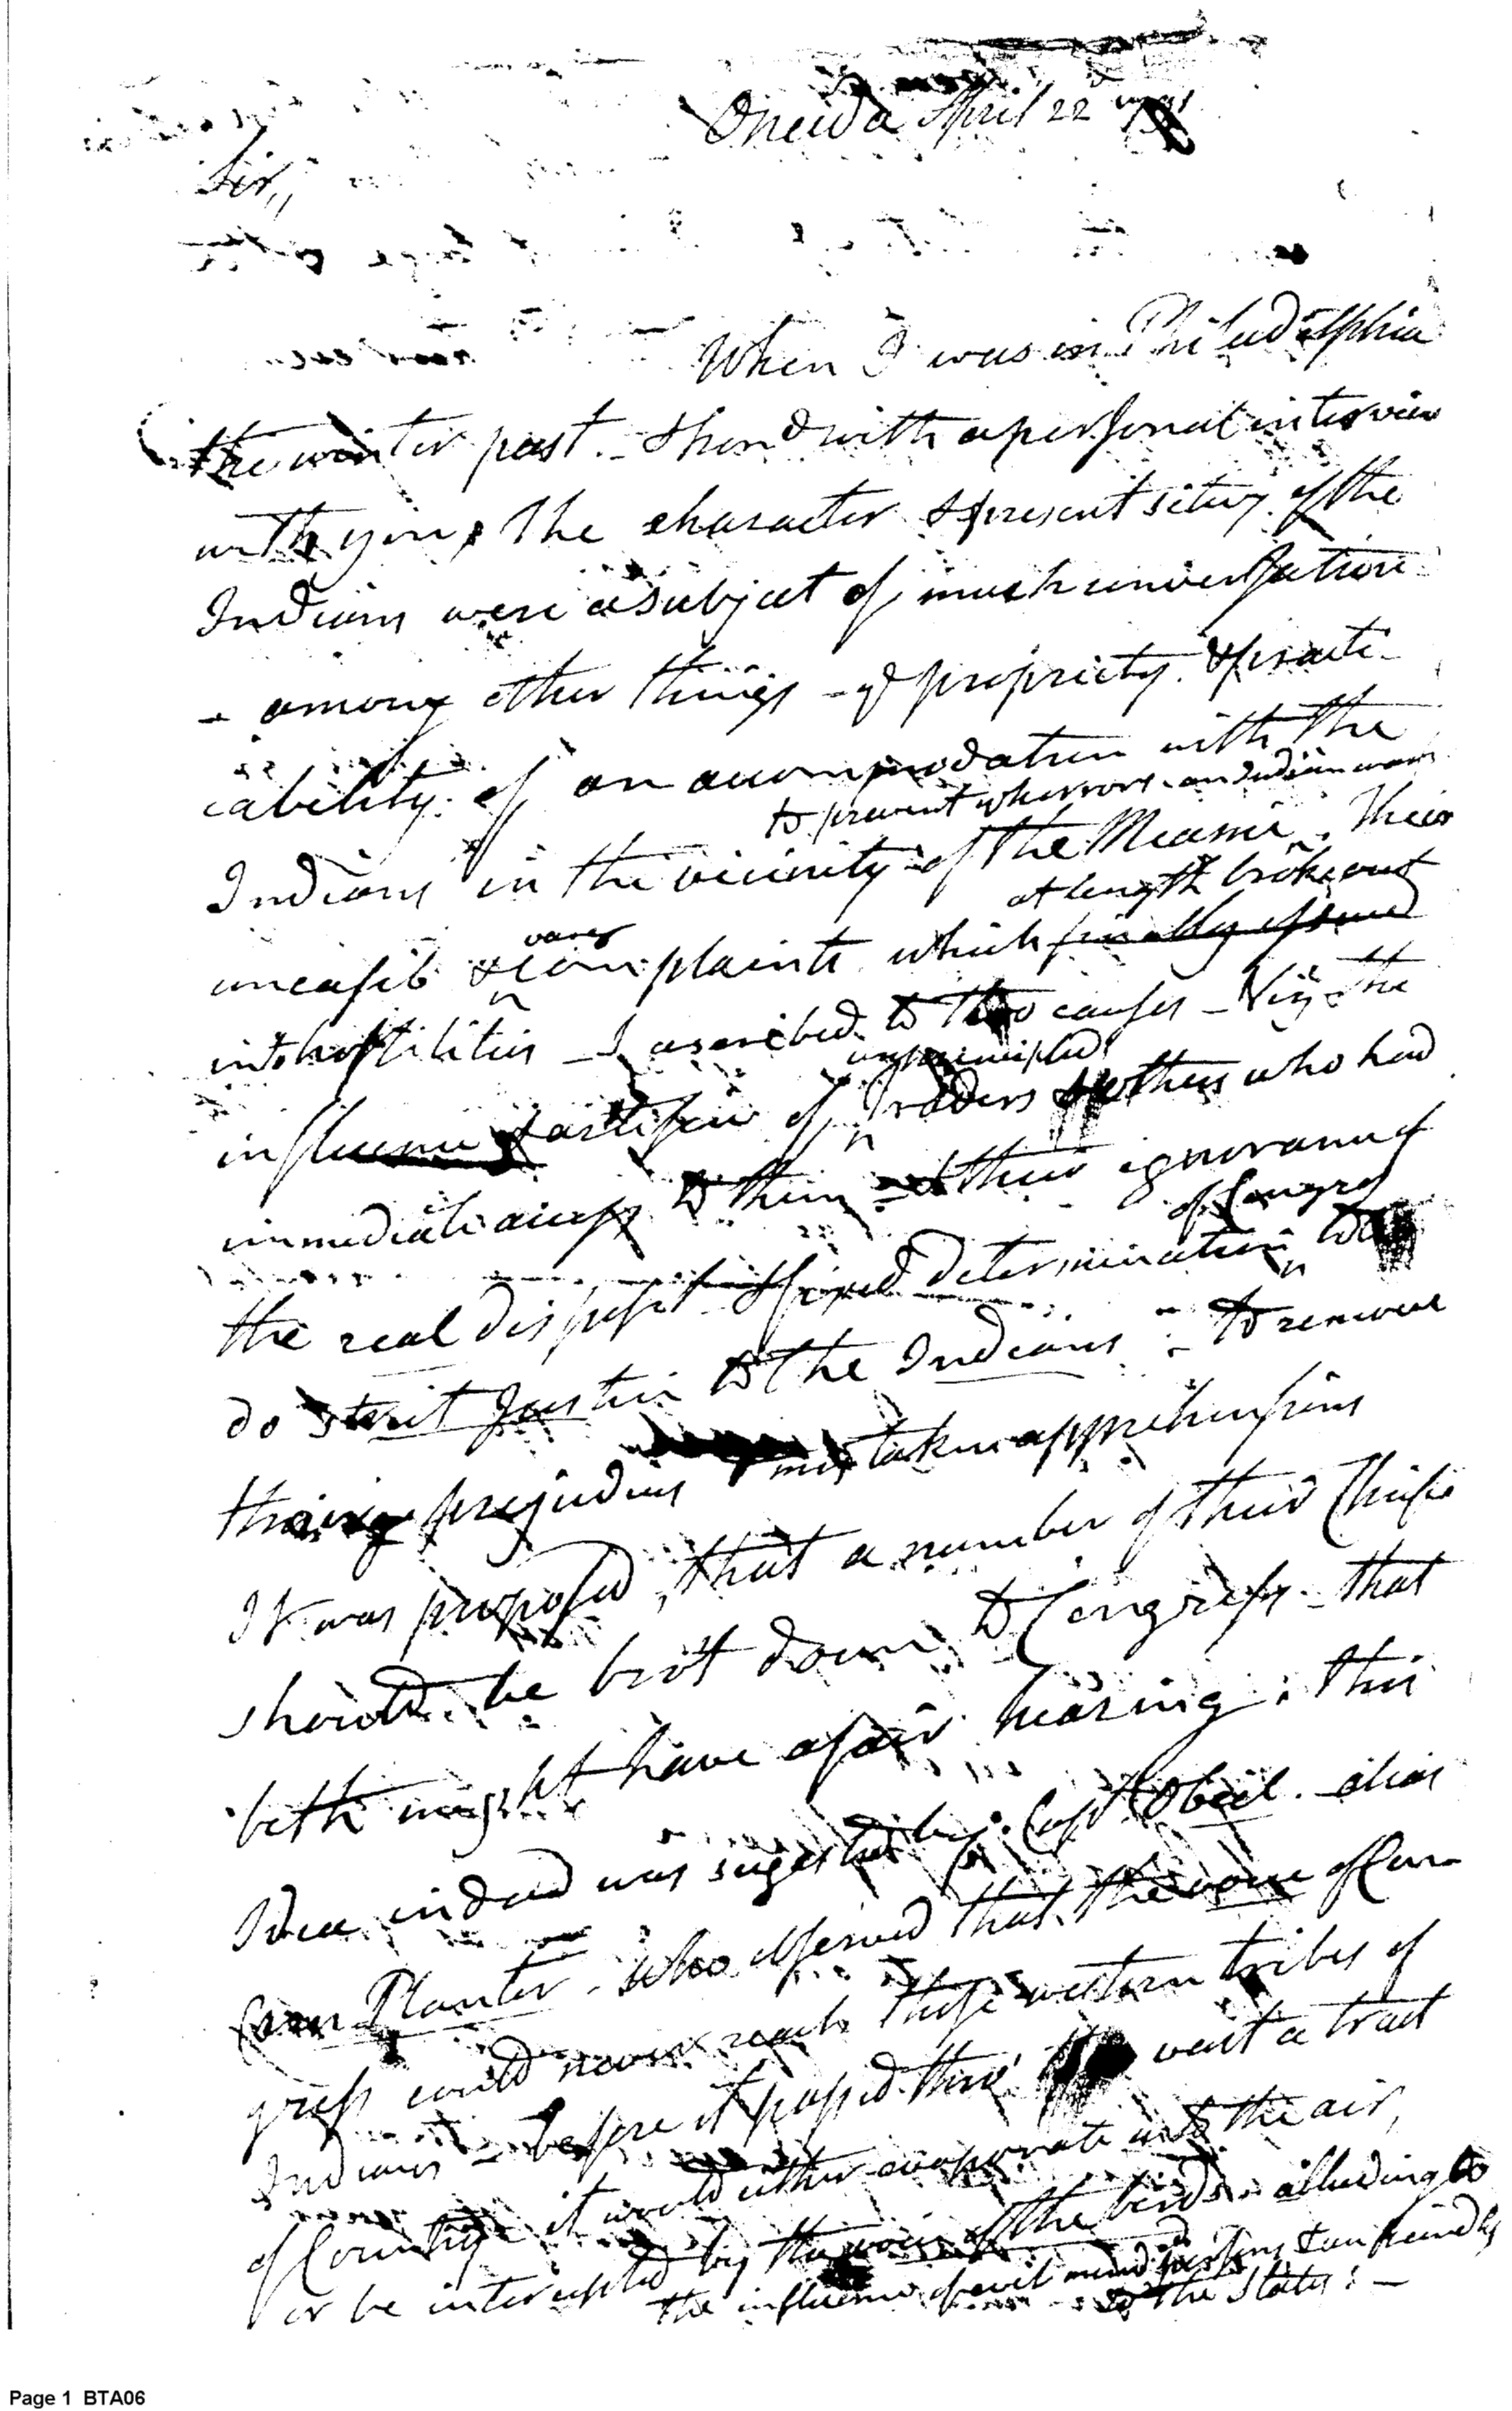 Oneida April 22 1791
Sir,,
When I was in Philadelphia
the winter past. - & hond with a personal interview
with you, The character & present situa. of the
Indians were a subject of much conversation
- among other things - ye propriety. & practi-
cability. of an accommodation with the
to prevent ye horrors. an Indian war
Indians in the vicinity of the Meami. Their
at length broke out
uneasis & complaints which finally issued
into hostilities - I ascribed to two causes - Viz. The
unprincipled
influence & artifice of Traders & others who had
immediate access to them - & their ignorance of
of Congress
the real disposit & fixed determination to
do strict Justice to the Indians - to remove
prejudices & mistaken apprehensions
It was proposed, that a number of their Chiefs
should be brot down to Congress - that
both might have a fair hearing: this
Idea indeed was sugested by. Capt Obeil. alias
Corn Planter - who observed that the voice of Con-
gress could never reach those western tribes of
Indians - before it passed thro' vast a tract
of Country it would either evaporate into the air,
or be intercepted by the voice of the birds. alluding to
the influence of evil minded persons & unfriendly
to the States: -
Page 1 BTA06